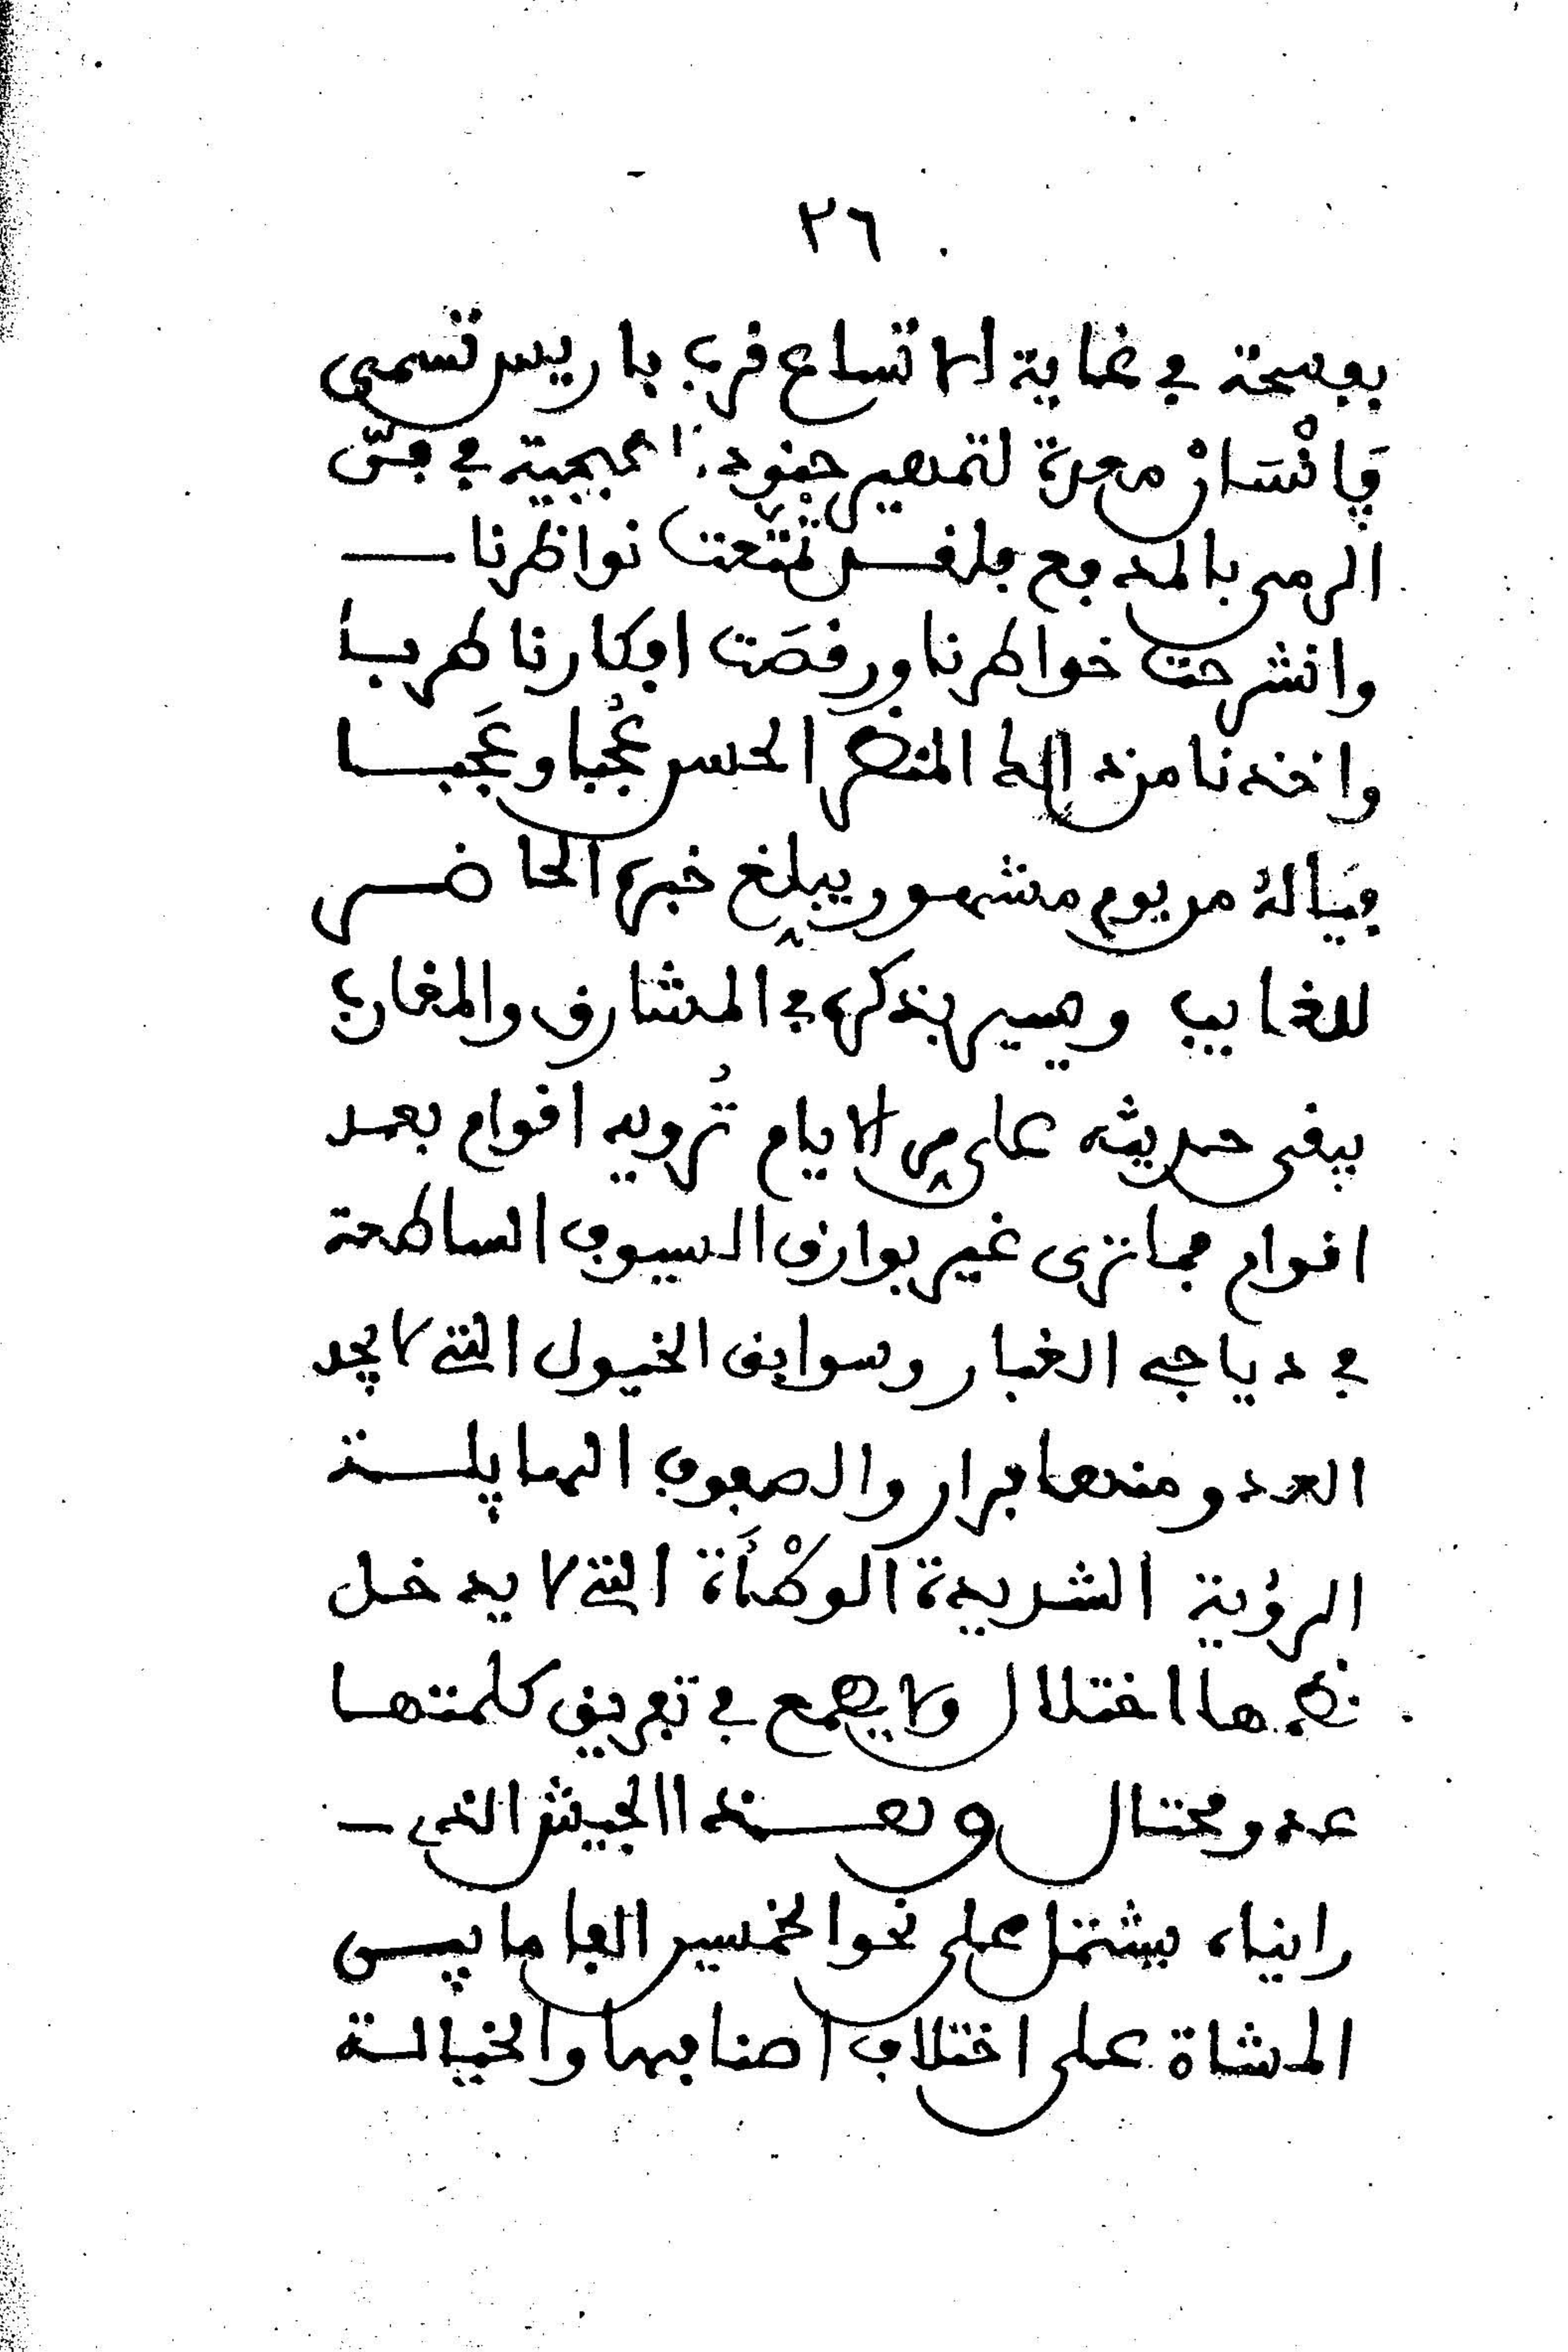 ٢٦
بفسحة في غاية الاتساع قرب باريس تسمى
ڢانْسَانْ معدة لتمصير جنود الطبجية في فنّ
الرمى بالمدافع فلقد تمتعت نواظرنا
وانشرحت خواطرنا ورقصَت افكارنا طربا
واخذنا من ذالك المنظر الحسن عُجبا وعَجبا
فيَالهُ من يوم مشهور يبلغ خبره الحاضر
للغايب ويسير بذكره في المشارق والمغارب
يبقى حديثه على مر الايام تُرويه اقوام بعد
اقوام فما ترى غير بوارق السيوف الساطعة
في دياجي الغبار وسوابق الخيول التي لا يجد
العدو منها فرار والصفوف الهايلة
الرؤية الشديدة الوطْأَة التي لا يدخل
نظمها اختلال ولا يطمع في تفريق كلمتها
عدو محتال وهذا الجيش الذى
رايناه يشتمل على نحو الخمسين الفا ما بين
المشاة على اختلاف اصنافها والخيالة